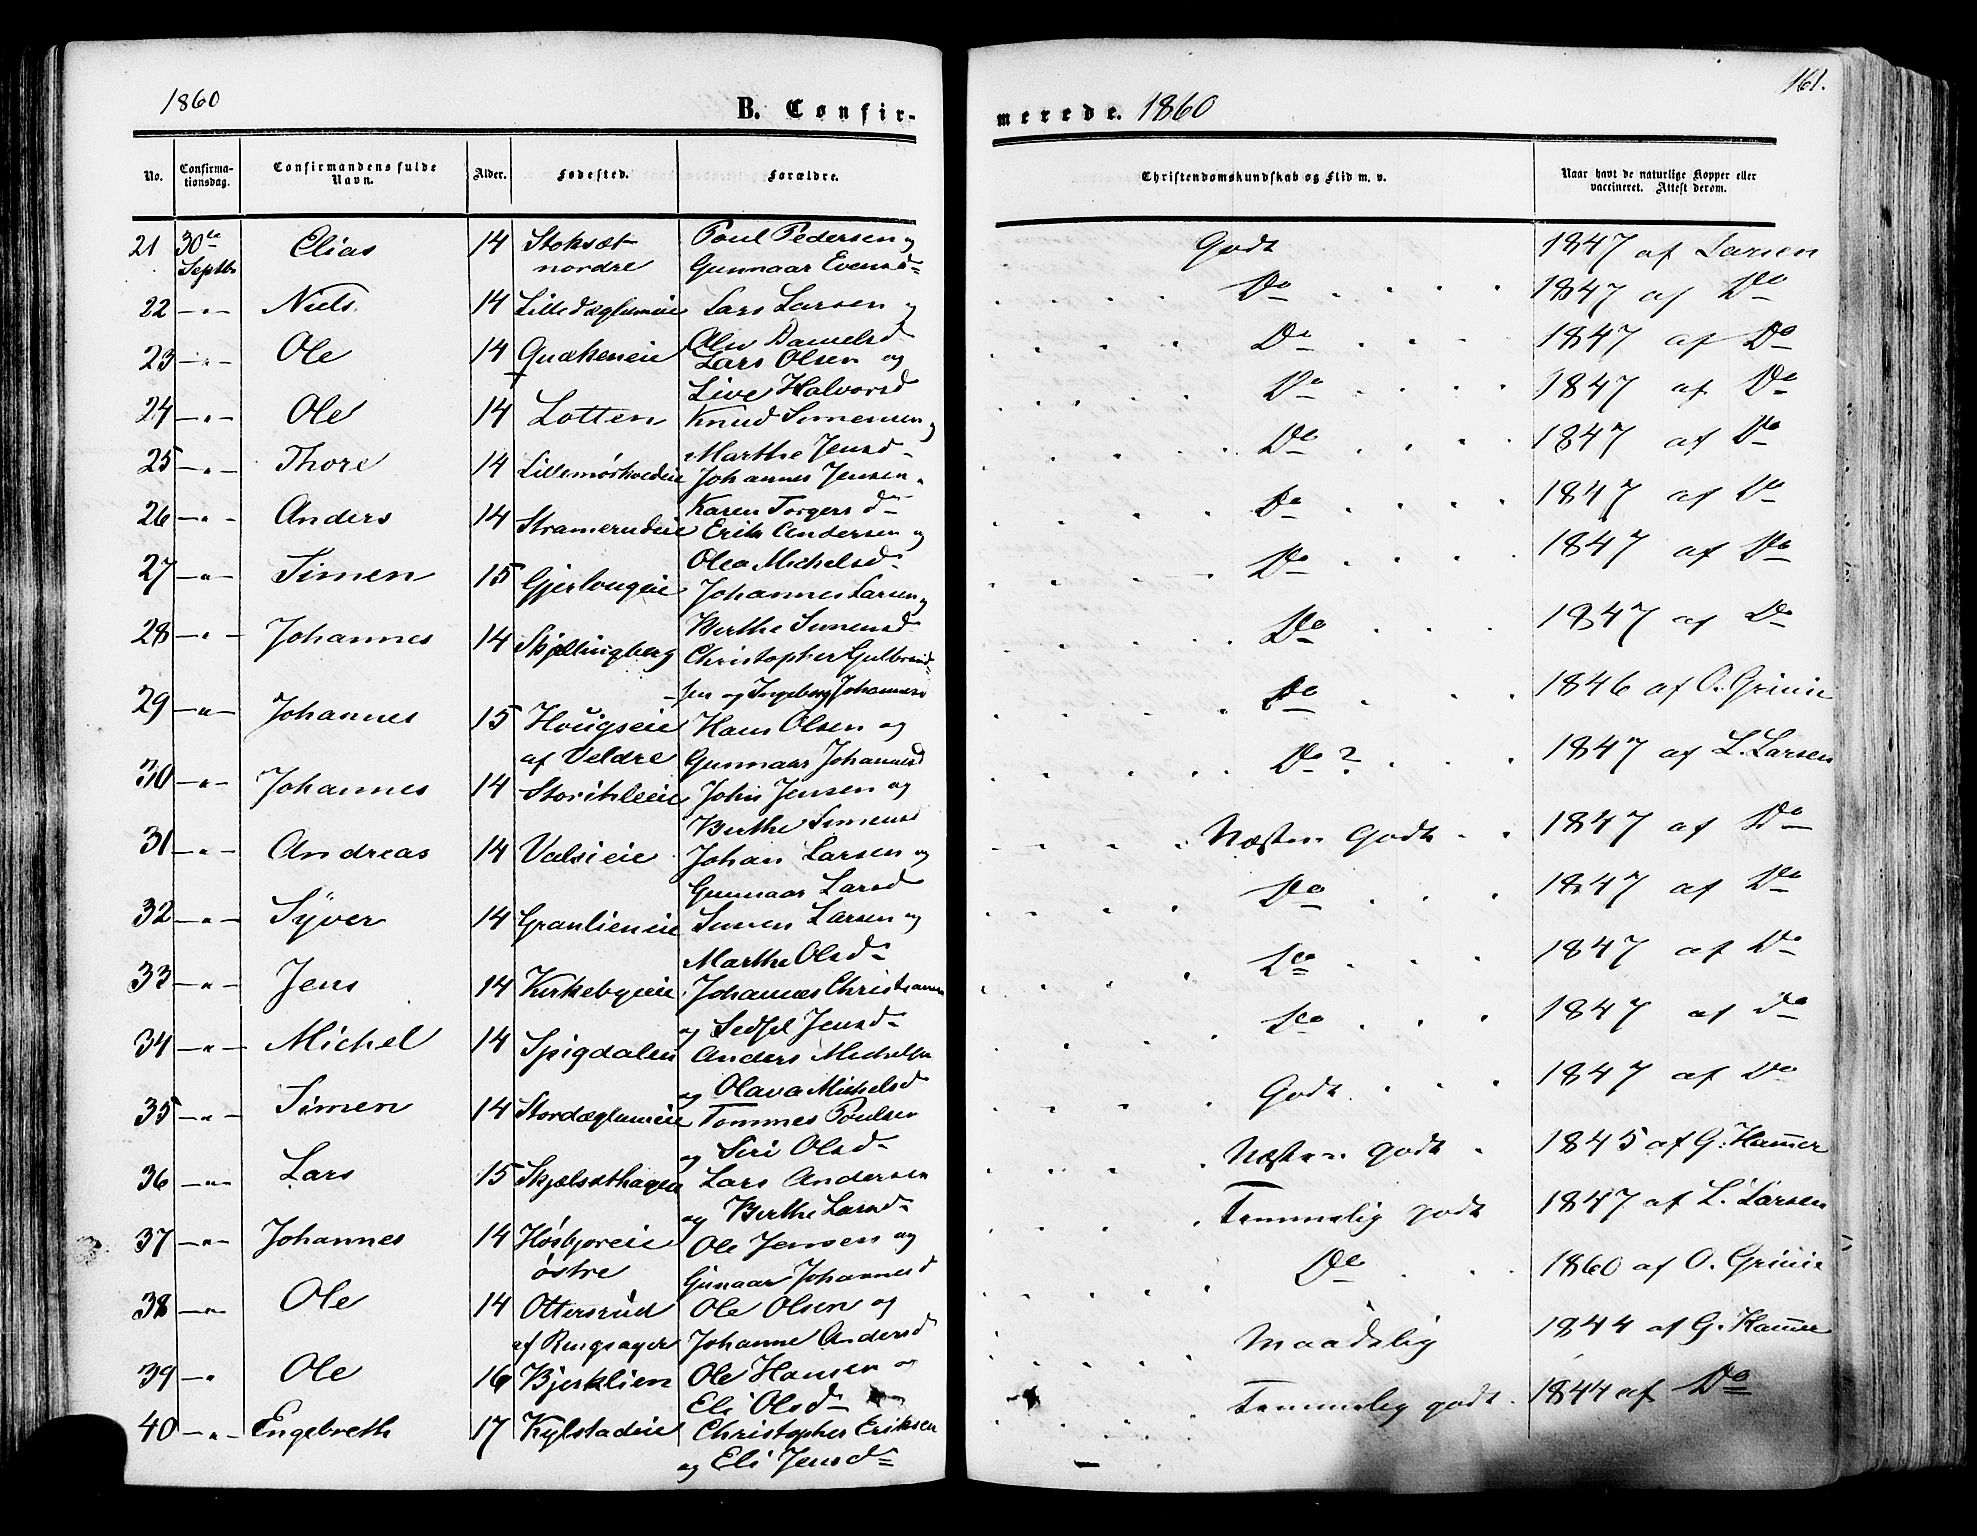 1860
B. Confir-
No. Confirma-tionsdag. Confirmandens fulde Navn. Alder. Fødested. Forældre.
21 30te Septbr Elias 14 Stoksæt nordre Poul Pedersen og Gunnaar Evensd
22 — " — Niels 14 Lille Dæglumeie Lars Larsen og Danielsd
23 — " — Ole 14 Quækeneie Lars Olsen og Live Halvorsd
24 — " — Ole 14 Lotten Knud Simensen og Marthe Jensd
25 — " — Thore 14 Lillemørkvedeie Johannes Jensen Karen Torgersd
26 — " — Anders 14 Stramerudeie Erik Andersen og Olea Michelsd
27 — " — Simen 15 Gjerlougeie Johannes Larsen og Berthe Simensd
28 — " — Johannes 14 Skjellingberg Christopher Gulbrandsen og Ingeborg Johannesd
29 — " — Johannes 15 Hougseie af Veldre Hans Olsen og Gunnaar Johannesd
30 — " — Johannes 14 John Jensen og Berthe Simensd
31 — " — Andreas 14 Valsieie Johan Larsen og Gunnaar Larsd
32 — " — Syver 14 Granlieneie Simen Larsen og Marthe Olsd
33 — " — Jens 14 Kirkebyeie Johannes Christiansen og Sedsel Jensd
34 — " — Michel 14 Spigdalen Anders Michelsen og Olava Michelsd
35 — " — Simen 14 Stordæglumeie Tommes Poulsen og Siri Olsd
36 — " — Lars 15 Skjelsethagen Lars Andersen og Berthe Larsd
37 — " — Johannes 14 Høsbjoreie østre Ole Jensen og Gunaar Johannesd
38 — " — Ole 14 Ottersrud af Ringsager Ole Olsen og Johanne Andersd
39 — " Ole 16 Bjerklien Ole Hansen og Eli Olsd
40 — " — Engebreth 17 Kylstadeie Christopher Eriksen og Eli Jensd
161.
merede. 1860
Christendomskundskab og Flid m. v. Naar havt de naturlige Kopper eller vaccineret. Attest derom.
Godt 1847 af Larsen
Do 1847 af Do
Do 1847 af Do
Do 1847 af Do
Do 1847 af Do
Do 1847 af Do
Do 1847 af Do
Do 1847 af Do
Do 1846 af O. Grinie
Do? 1847 af L. Larsen
Næsten Godt 1847 af Do
Do 1847 af Do
Do 1847 af Do
Do 1847 af do
Godt 1847 af Do
Næsten godt 1845 af G. Ham̄er
Temmelig godt 1847 af L. Larsen
Do 1860 af O. Grinie
Maadelig 1844 af G. Ham̄er
Temmelig godt 1844 af Do